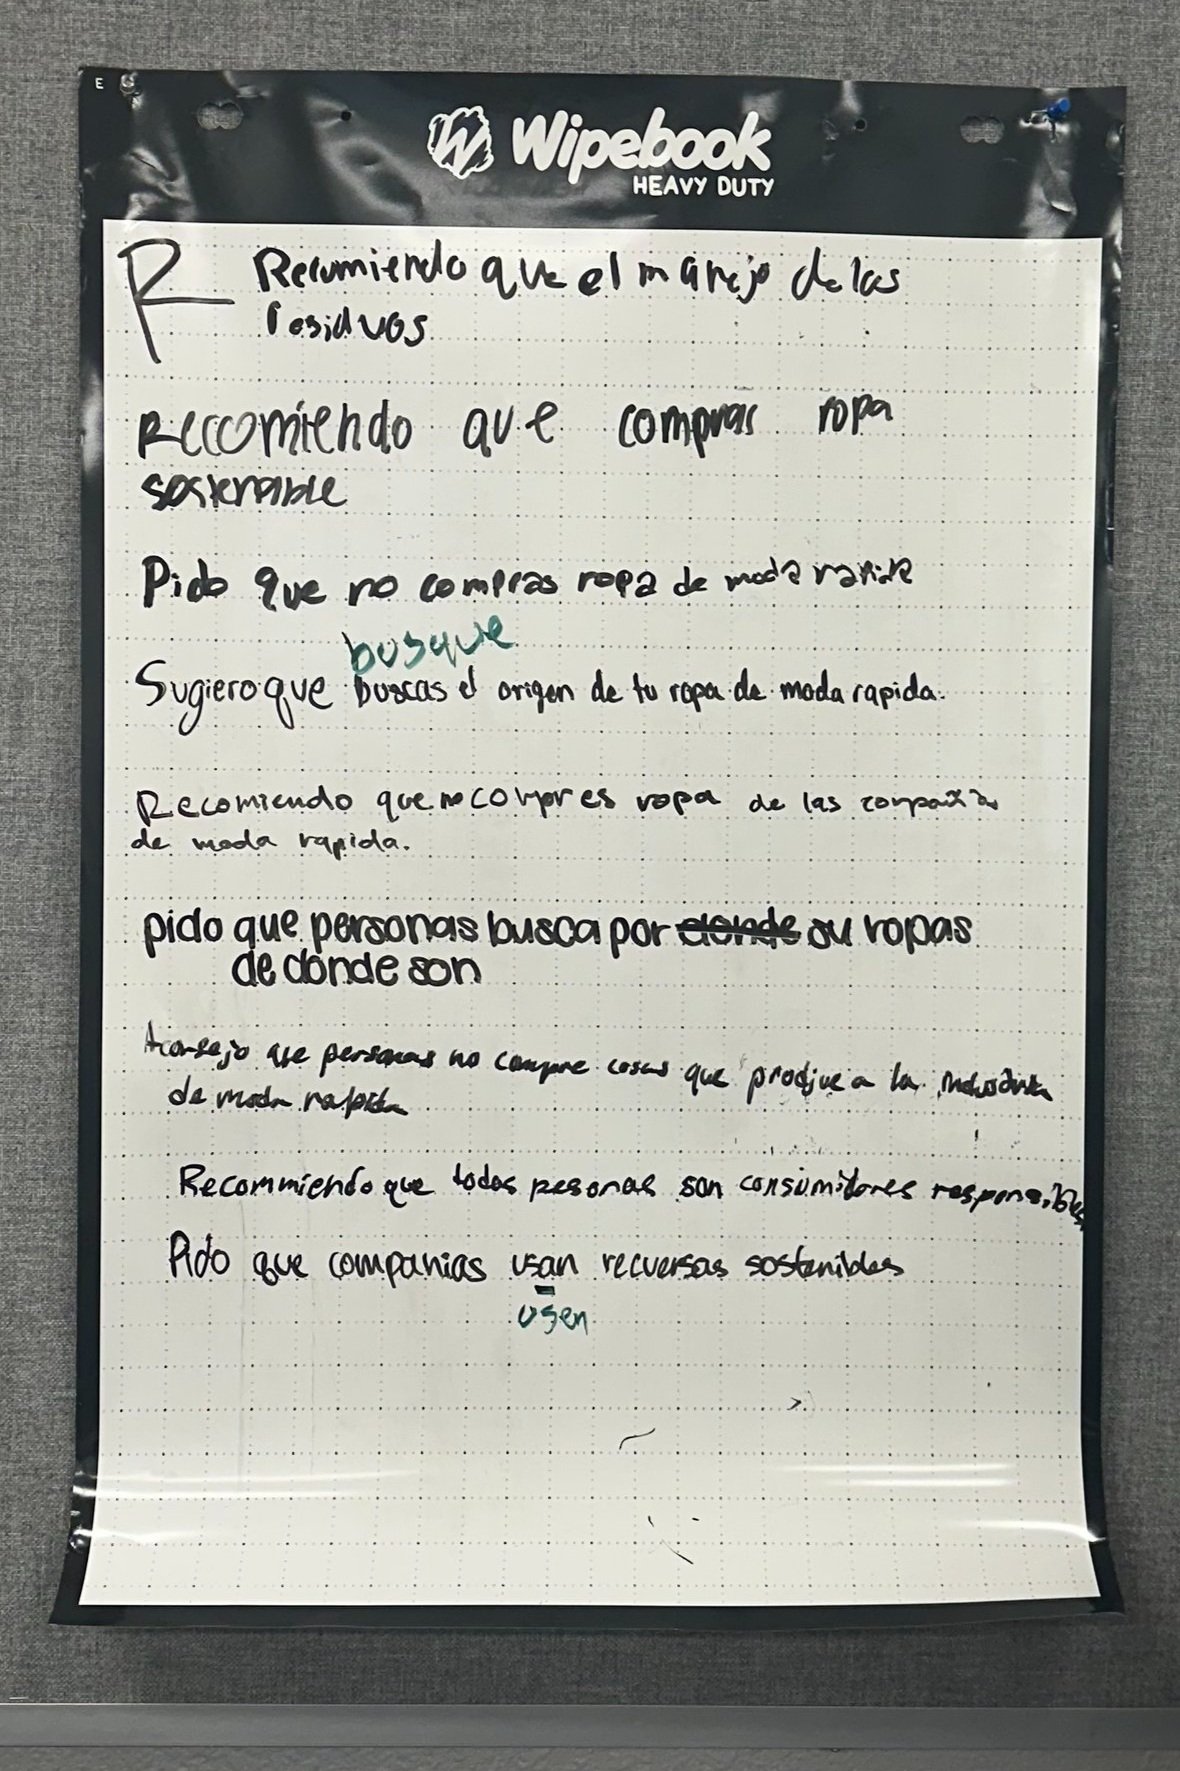 E
Wipebook
HEAVY DUTY
R Recumiendo que el manejo de las
residuos
Reccomiendo que compras ropa
sostenible
Pido que no compras ropa de moda rapida
busque
Sugiero que buscas el origen de tu ropa de moda rapida.
Recomiendo que no compres ropa de las compañias
de moda rapida.
pido que personas busca por donde su ropas
de donde son
Aconsejo que personas no compre cosas que prodjue a la
de moda rapida
Recommiendo que todas pesonas son consumidores responsibles
Pido que companias usan recuersas sostenibles
usen